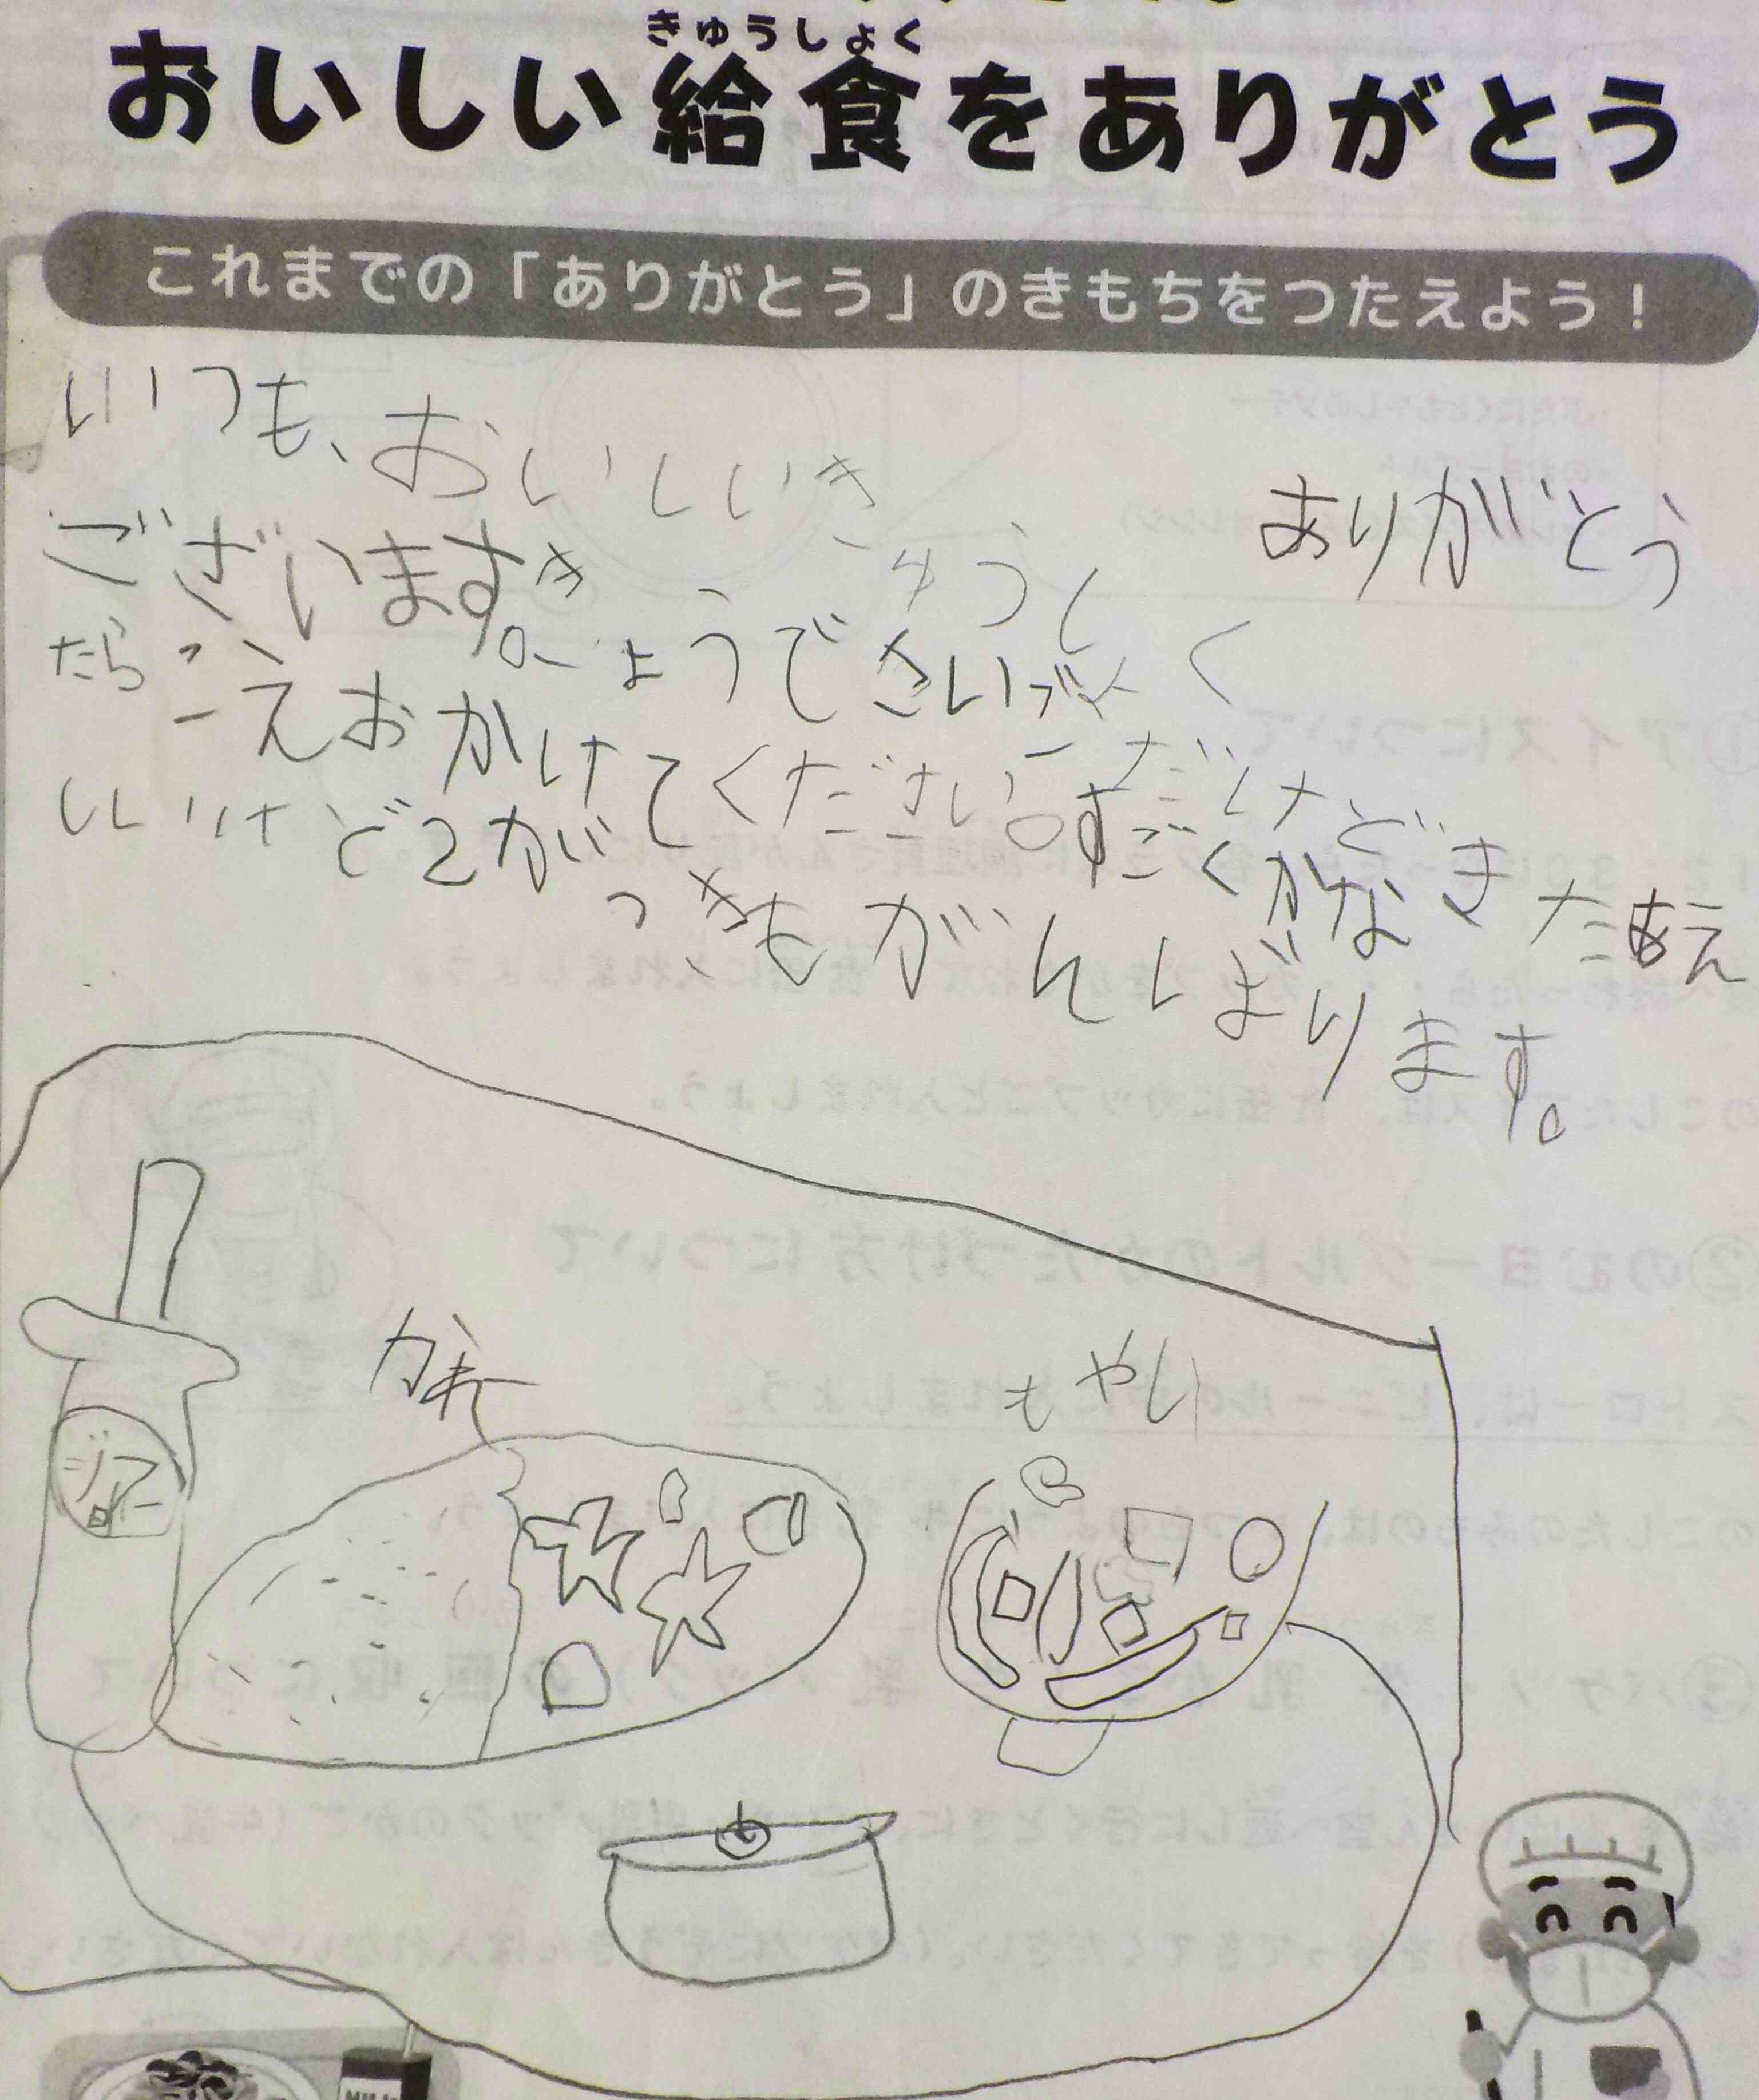 きゅうしょく
おいしい給食をありがとう
これまでの「ありがとう」のきもちをつたえよう！
いつも、おいしいきゅうしょくありがとう
ございます。きょうでさいごだけどきたあえ
たらこえおかけてください。すごくかな
しいけど2がっきもがんばります。
かれー
もやし
MILK